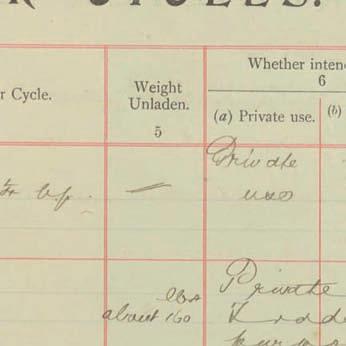 CYCLES.
r Cycle.
Weight
Unladen.
5
Whether inten
6
(a) Private use.
(b)
Private
use
h.p.
—
lbs
about 160
Private
Trade
purpos